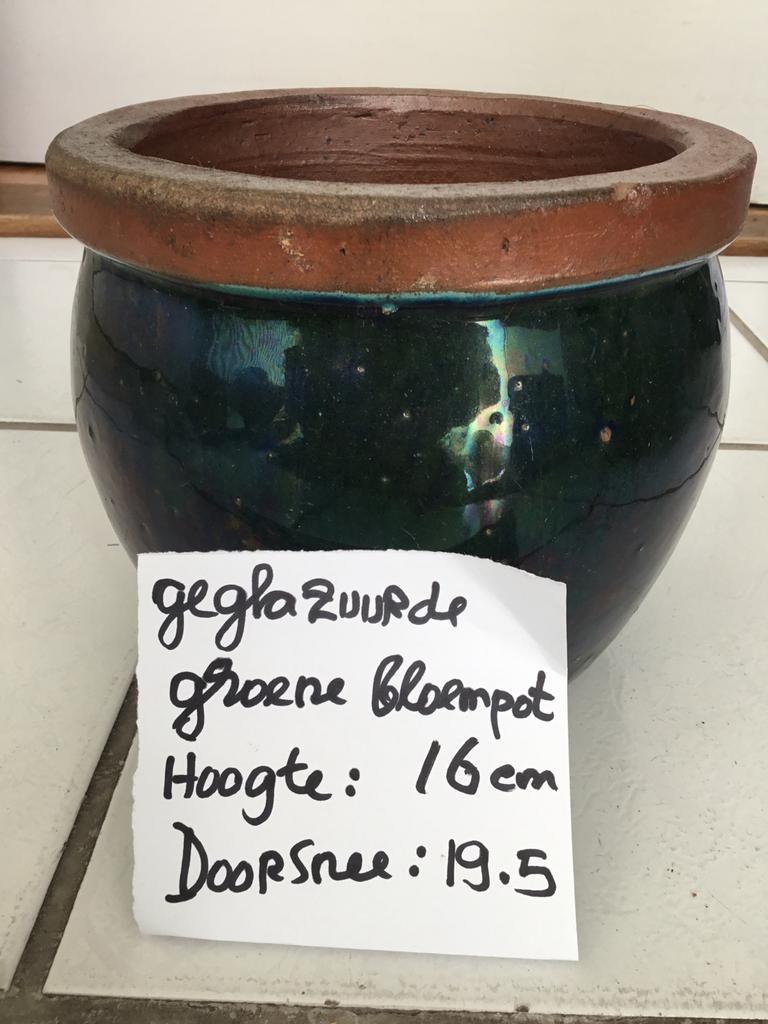 geglazuurde
groene bloempot
Hoogte: 16 cm
Doorsnee: 19.5